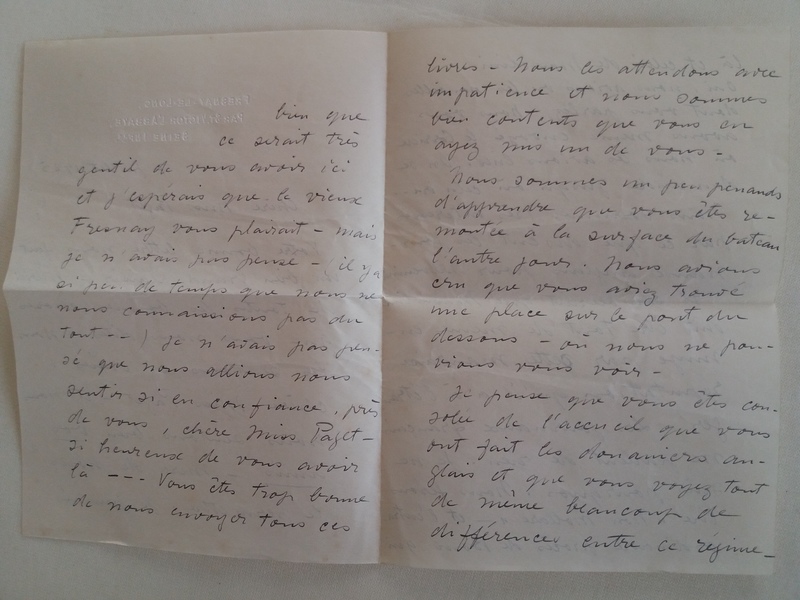 bien que
ce serait très
gentil de vous avoir ici
et j'espérais que le vieux
Fresnay vous plairait - mais
je n'avais pas pensé - (il y a
si peu de temps que nous ne
nous connaissions pas du
tout -- ) je n'avais pas pen-
sé que nous allions nous
sentir si en confiance, près
de vous, chère Miss Paget -
si heureux de vous avoir
là --- Vous êtes trop bonne
de nous envoyer tous ces
livres - Nous les attendons avec
impatience et nous sommes
bien contents que vous en
ayez mis un de vous -
Nous sommes un peu penauds
d'apprendre que vous êtes re-
montée à la surface du bateau
l'autre jour. Nous avions
cru que vous aviez trouvé
une place sur le pont du
dessous - où nous ne pou-
vions vous voir -
Je pense que vous êtes con-
solée de l'accueil que vous
ont fait les douaniers an-
glais et que vous voyez tout
de même beaucoup de
différences entre ce régime -